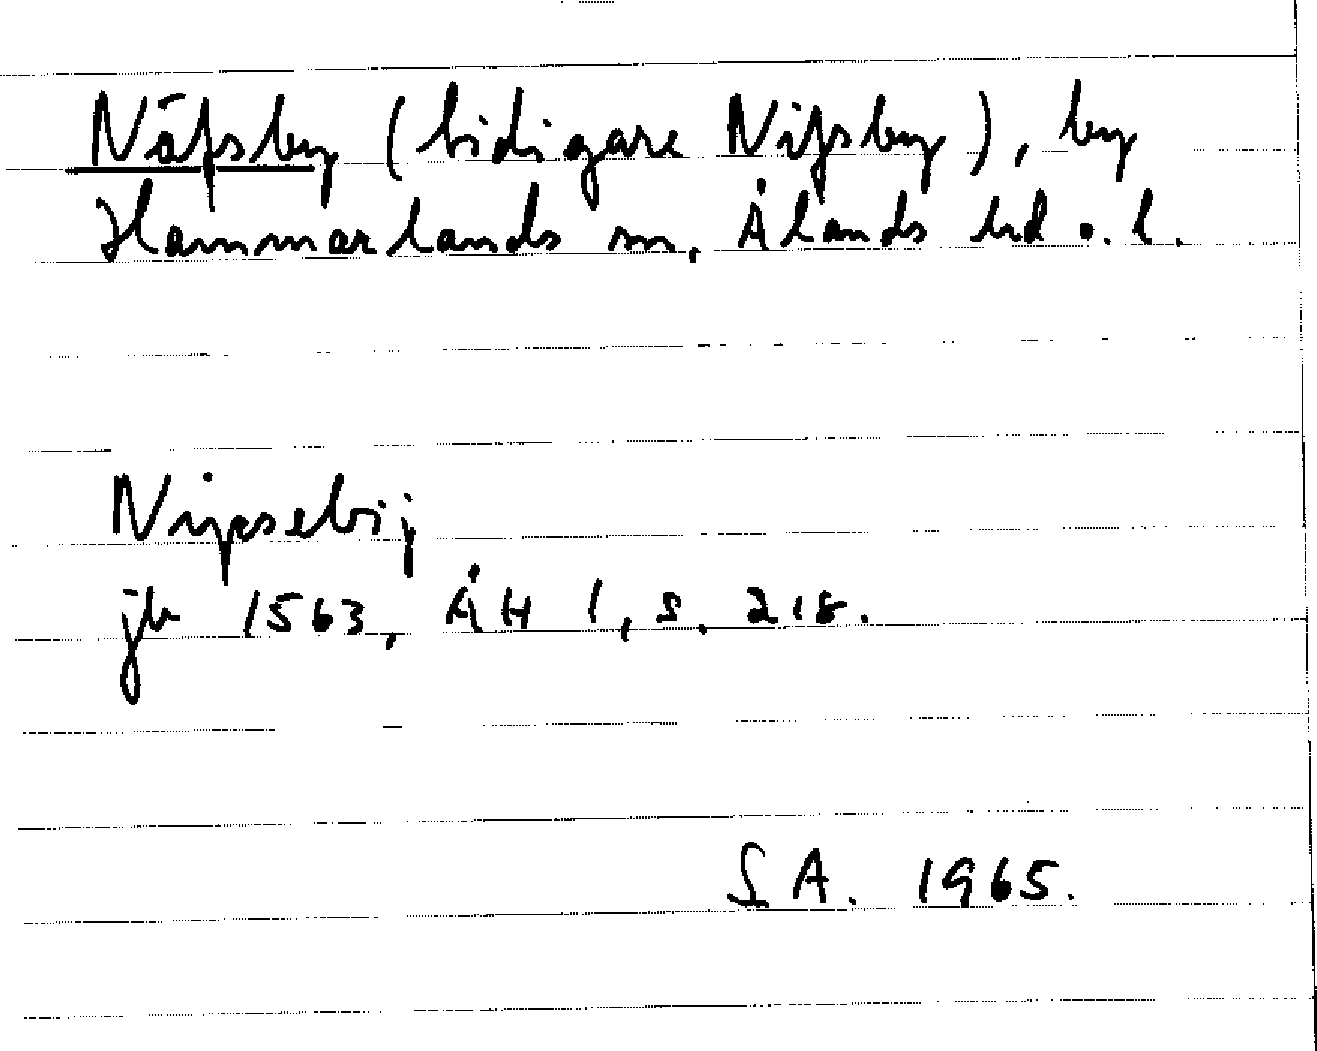 Näfsby (tidigare Nifsby), by
Hammarlands sn, Ålands hd o. l.
Nipsebij
jb 1563, ÅH 1, s. 218.
S A. 1965.